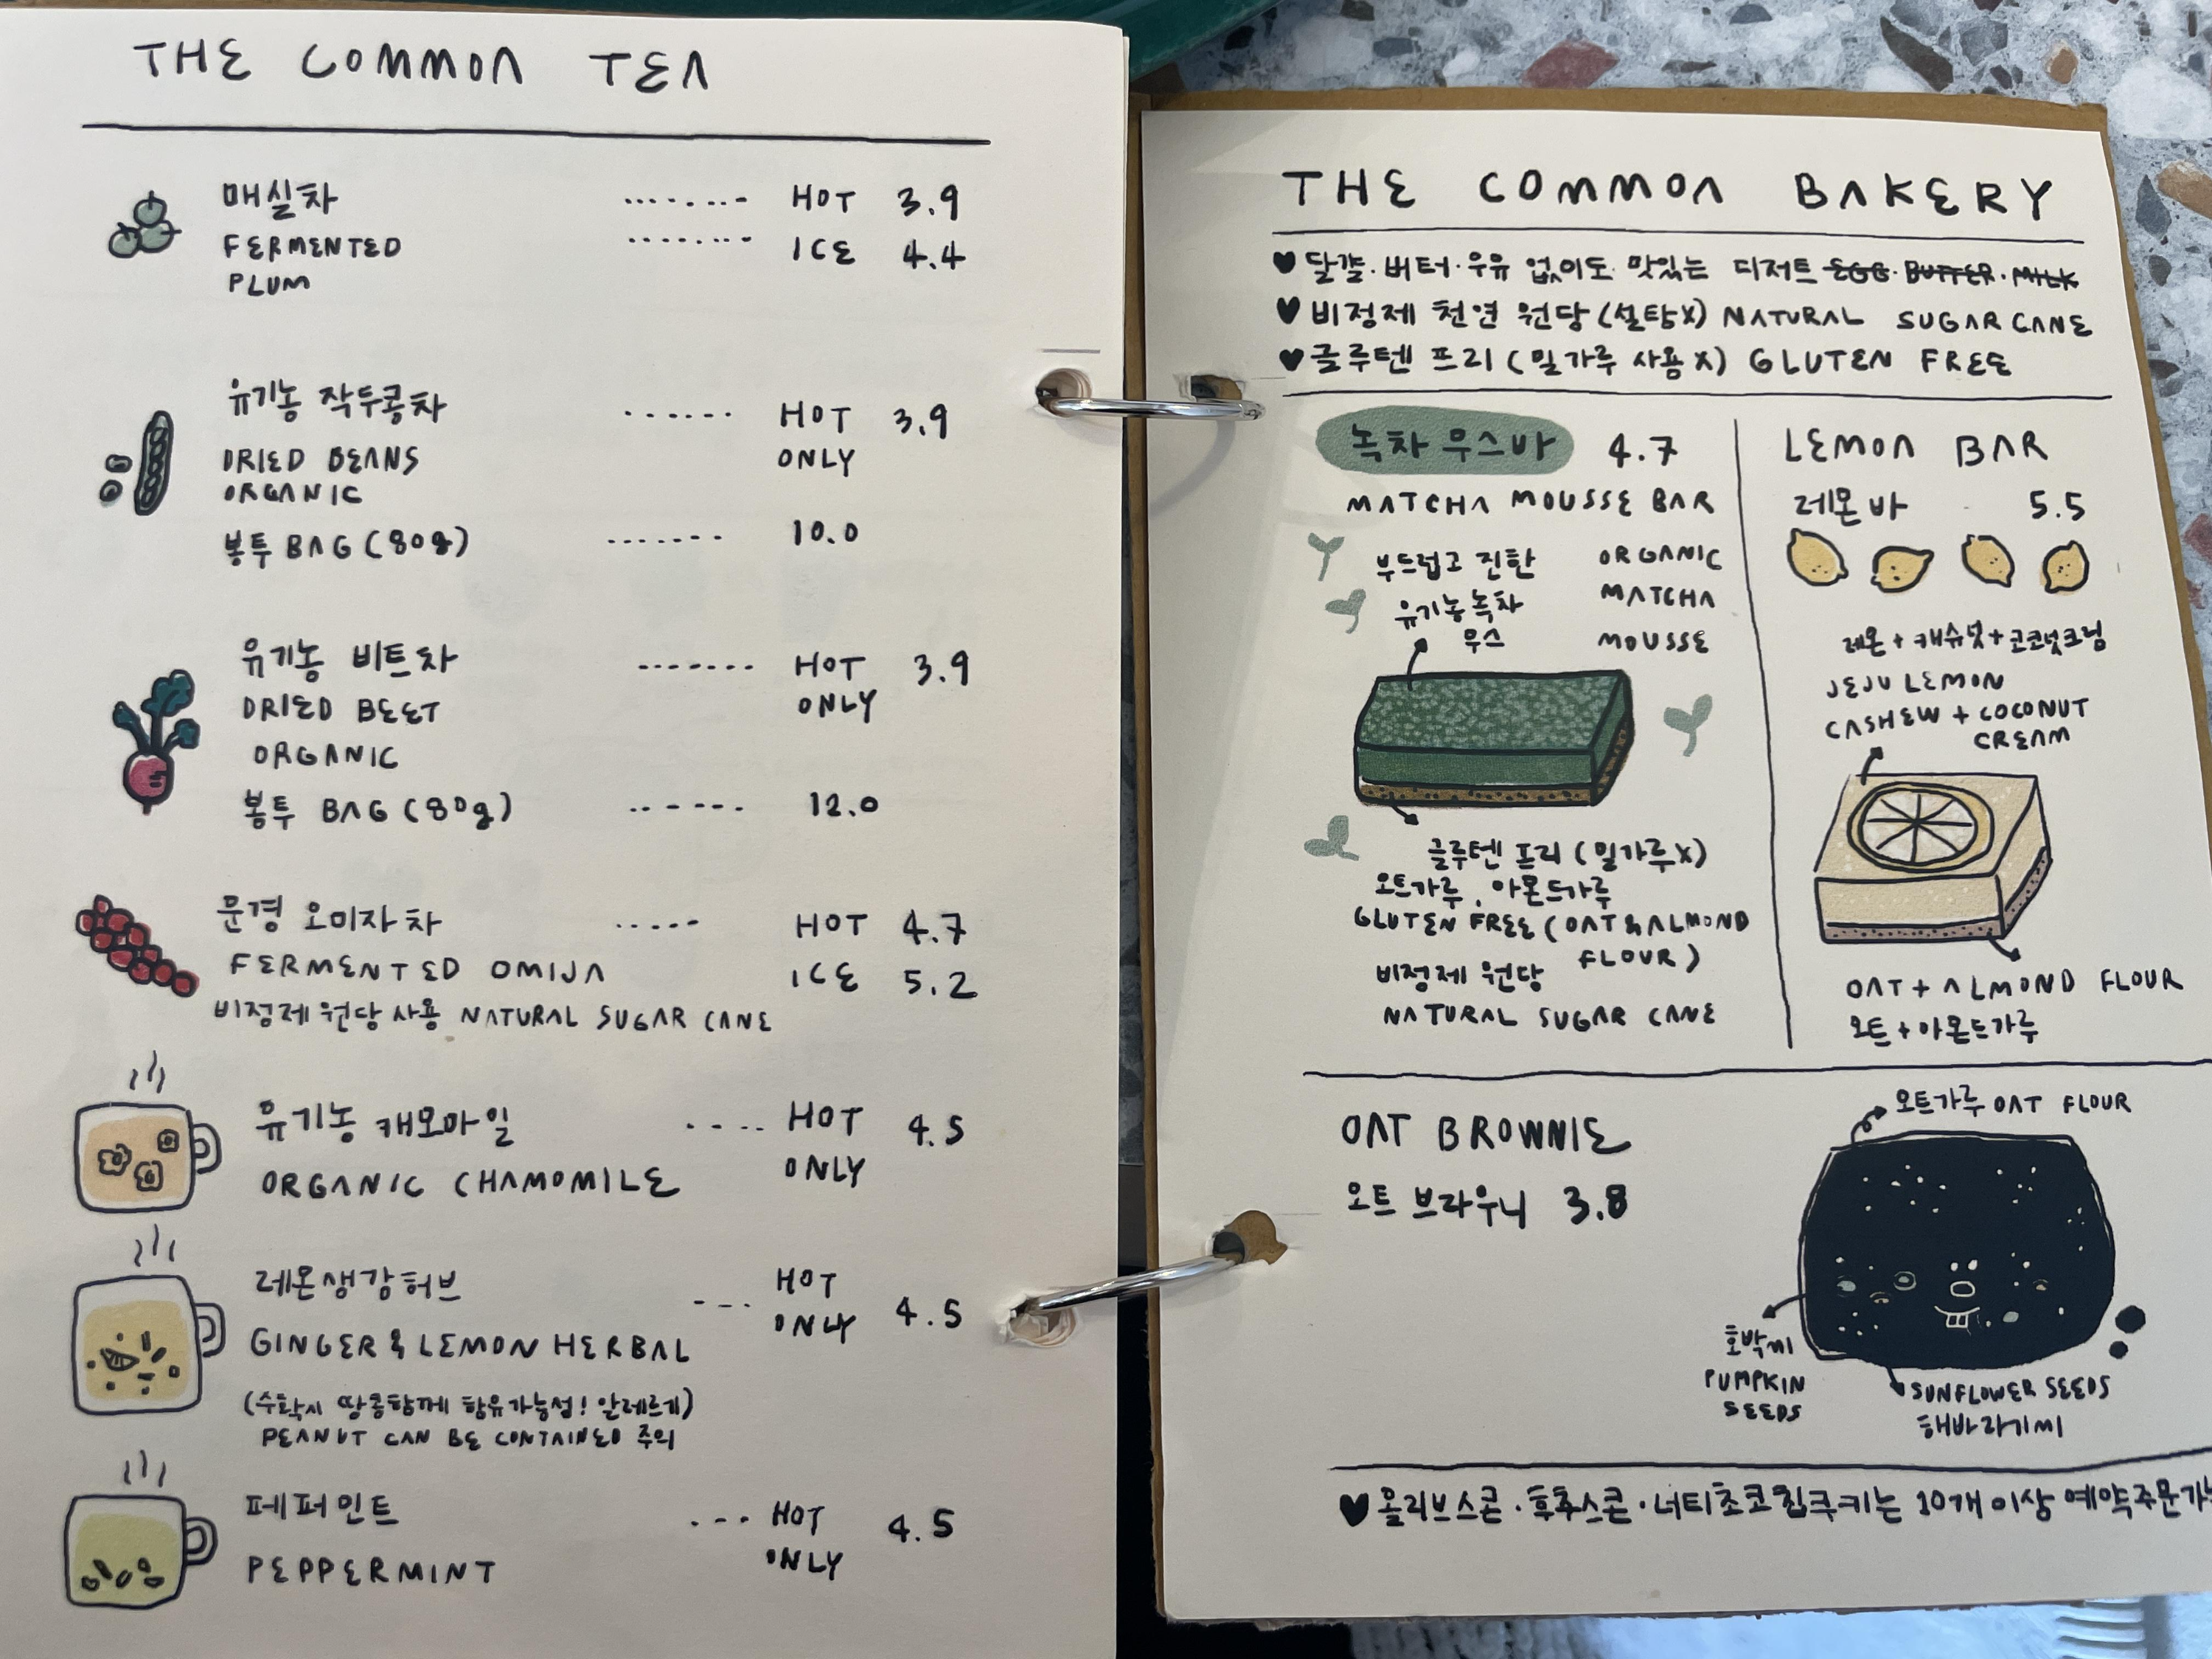 THE COMMON TEA
매실차 ........ HOT 3.9
FERMENTED ........ ICE 4.4
PLUM
유기농 작두콩차 ...... HOT 3.9
DRIED BEANS ONLY
ORGANIC
봉투 BAG (80g) ....... 10.0
유기농 비트차 ....... HOT 3.9
DRIED BEET ONLY
ORGANIC
봉투 BAG (80g) ....... 12.0
문경 오미자차 ..... HOT 4.7
FERMENTED OMIJA ICE 5.2
비정제 원당 사용 NATURAL SUGAR CANE
유기농 캐모마일 .... HOT 4.5
ORGANIC CHAMOMILE ONLY
레몬생강허브 --- HOT 4.5
GINGER & LEMON HERBAL ONLY
(수확시 땅콩함께 함유가능성! 알레르기)
PEANUT CAN BE CONTAINED 주의
페퍼민트 ... HOT 4.5
PEPPERMINT ONLY
THE COMMON BAKERY
♥ 달걀·버터·우유 없이도 맛있는 디저트 EGG·BUTTER·MILK
♥ 비정제 천연 원당 (설탕X) NATURAL SUGAR CANE
♥ 글루텐 프리 (밀가루 사용X) GLUTEN FREE
녹차 무스바 4.7
MATCHA MOUSSE BAR
부드럽고 진한
유기농녹차
무스
ORGANIC
MATCHA
MOUSSE
글루텐 프리 (밀가루X)
오트가루, 아몬드가루
GLUTEN FREE (OAT & ALMOND
FLOUR)
비정제 원당
NATURAL SUGAR CANE
LEMON BAR
레몬바 5.5
레몬+캐슈넛+코코넛크림
JEJU LEMON
CASHEW + COCONUT
CREAM
OAT + ALMOND FLOUR
오트+아몬드가루
OAT BROWNIE
오트 브라우니 3.8
오트가루 OAT FLOUR
호박씨
PUMPKIN
SEEDS
SUNFLOWER SEEDS
해바라기씨
♥ 올리브스콘·후추스콘·너티초코칩쿠키는 10개이상 예약주문가